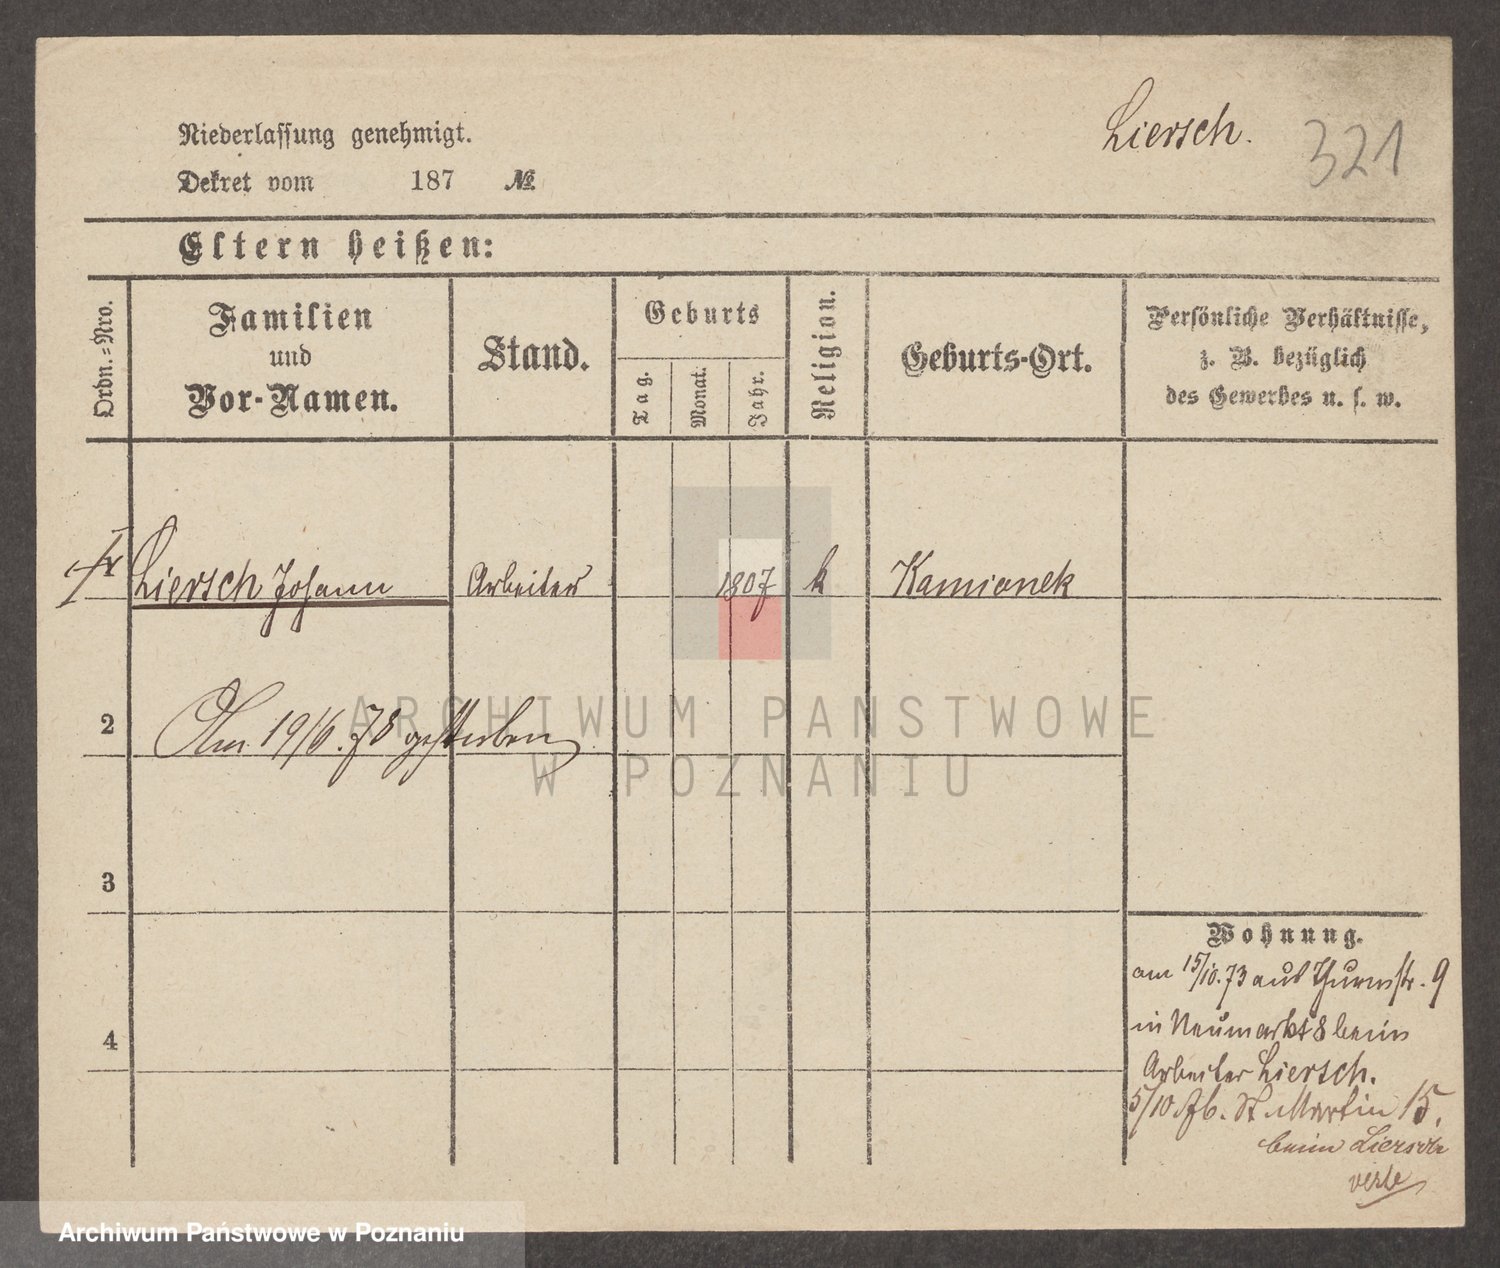 Liersch.
321
Niederlassung genehmigt.
Dekret vom 187 №
Eltern heißen:
Ordn.=Nro.
Familien
und
Vor-Namen.
Stand.
Geburts
Tag.
Monat.
Jahr.
Religion.
Geburts-Ort.
Persönliche Verhältnisse,
z. B. bezüglich
des Gewerbes u. s. w.
Liersch Johann Arbeiter 1807 k Kamionek
2
Am 19/6.78 gestorben
3
4
Wohnung.
am 15/10.73 aus Thurmstr. 9
in Neumarkt 8 beim
Arbeiter Liersch.
5/10 St. Martin 15.
beim Liersch
ARCHIWUM PANSTWOWE
W POZNANIU
Archiwum Państwowe w Poznaniu